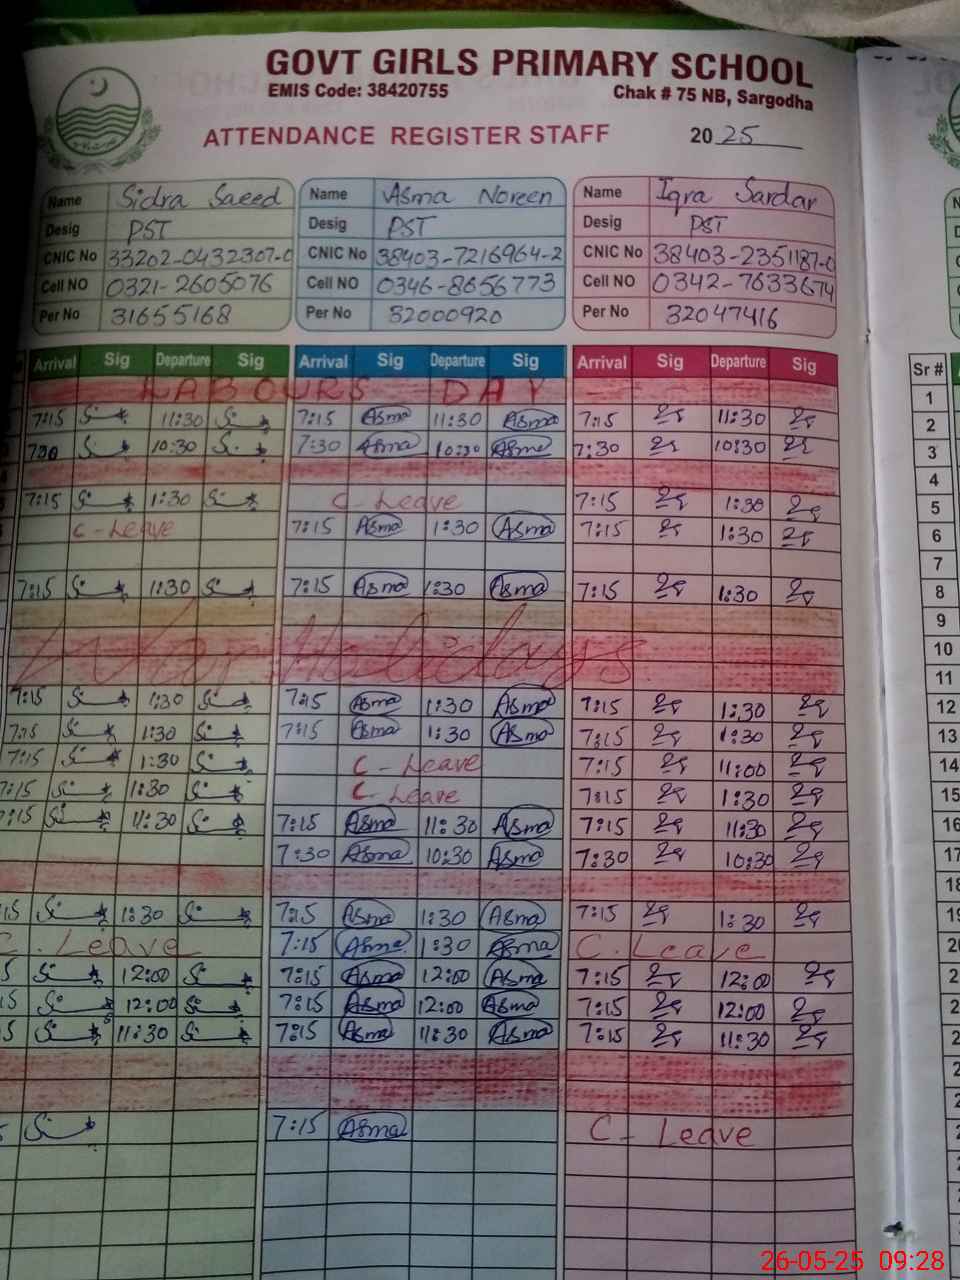 GOVT GIRLS PRIMARY SCHOOL
EMIS Code: 38420755 Chak # 75 NB, Sargodha
ATTENDANCE REGISTER STAFF 2025
Name Sidra Saeed Name Asma Noreen Name Iqra Sardar
Desig PST Desig PST Desig PST
CNIC No 33202-0432307-0 CNIC No 38403-7216964-2 CNIC No 38403-2351187-0
Cell NO 0321-2605076 Cell NO 0346-8656773 Cell NO 0342-7633674
Per No 31655168 Per No 32000920 Per No 32047416
Arrival Sig Departure Sig Arrival Sig Departure Sig Arrival Sig Departure Sig Sr #
LABOURS DAY 1
7:15 11:30 7:15 Asma 11:30 Asma 7:15 11:30 2
7:30 10:30 7:30 Asma 10:30 Asma 7:30 10:30 3
4
7:15 1:30 C-Leave 7:15 1:30 5
C-Leave 7:15 Asma 1:30 Asma 7:15 1:30 6
7
7:15 1:30 7:15 Asma 1:30 Asma 7:15 1:30 8
9
War Holidays 10
11
7:15 1:30 7:15 Asma 1:30 Asma 7:15 1:30 12
7:15 1:30 7:15 Asma 1:30 Asma 7:15 1:30 13
7:15 1:30 C-Leave 7:15 11:00 14
7:15 1:30 C-Leave 7:15 1:30 15
7:15 11:30 7:15 Asma 11:30 Asma 7:15 11:30 16
7:30 Asma 10:30 Asma 7:30 10:30 17
18
15 1:30 7:15 Asma 1:30 Asma 7:15 1:30 19
C-Leave 7:15 Asma 1:30 Asma C-Leave 20
5 12:00 7:15 Asma 12:00 Asma 7:15 12:00 2
15 12:00 7:15 Asma 12:00 Asma 7:15 12:00 2
5 11:30 7:15 Asma 11:30 Asma 7:15 11:30 2
2
2
5 7:15 Asma C-Leave 2
26-05-25 09:28